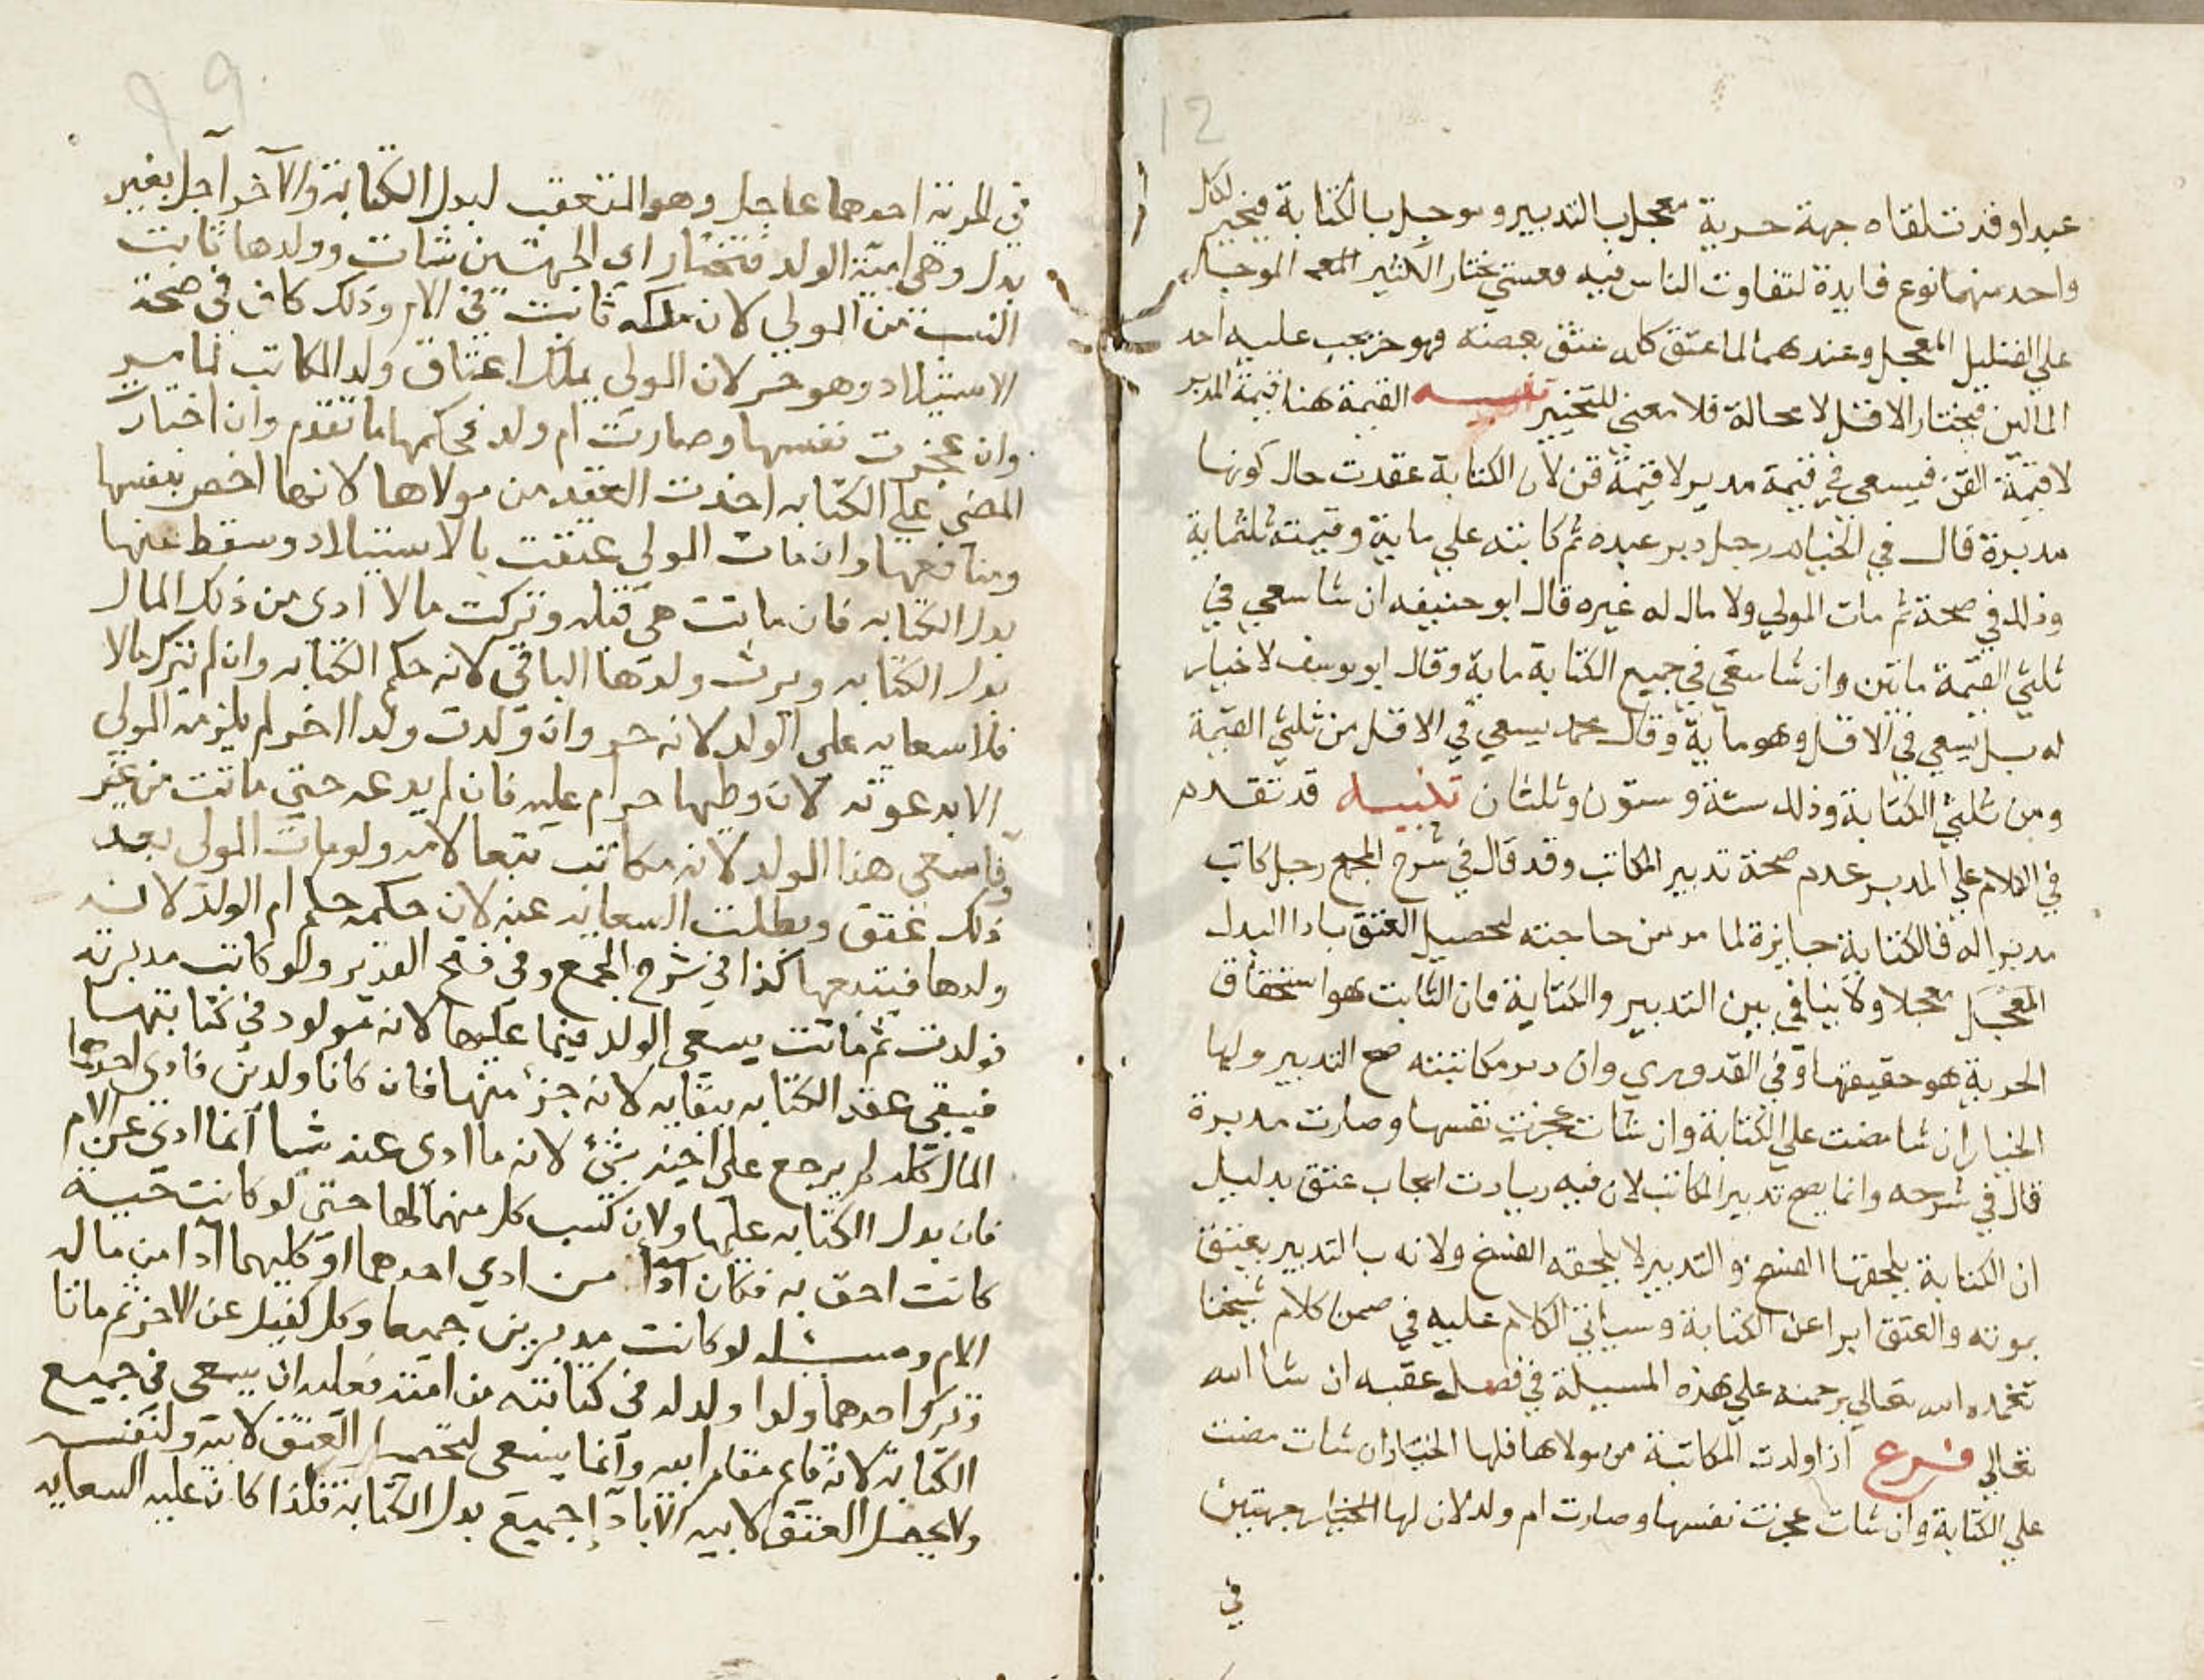 12
عبدا وقد تلقاه جهة حرية معجل بالتدبير وموجل بالكتابة فيخير لكل
واحد منهما نوع فايدة لتفاوت الناس فيه فعسي يختار الكثير الموجل
علي القليل المعجل وعندهما لما عتق كله عتق بعضه فهو حر يجب عليه احد
المالين فيختار الاقل لا محالة فلا معني للتخيير تنبيه القيمة هنا قيمة المدبر
لا قيمة القن فيسعي في قيمة مدبر لا قيمة قن لان الكتابة عقدت حال كونها
مدبرة قال في رجل دبر عبده ثم كاتبه علي ماية وقيمته ثلثماية
وذلك في صحة ثم مات المولي ولا مال له غيره قال ابو حنيفه ان شا سعي في
ثلثي القيمة ماتين وان شا سعي في جميع الكتابة ماية وقال ابو يوسف لا خيار
له بل يسعي في الاقل وهو ماية وقال محمد يسعي في الاقل من ثلثي القيمة
ومن ثلثي الكتابة وذلك ستة وستون وثلثان تنبيه قد تقدم
في الكلام علي المدبر عدم صحة تدبير المكاتب وقد قال في شرح المجمع رجل كاتب
مدبرا له فالكتابة جايزة لما مر من حاجته لتحصيل العتق بادا البدل
المعجل معجلا ولا ينافي بين التدبير والكتابة فان الثابت هو استحقاق
الحرية هو حقيقتها وفي القدوري وان دبر مكاتبته صح التدبير ولها
الخيار ان شا مضت علي الكتابة وان شات عجزت نفسها وصارت مدبرة
قال في شرحه وانما يصح تدبير المكاتب لان فيه زيادت ايجاب عتق بدليل
ان الكتابة يلحقها الفسخ والتدبير لا يلحقه الفسخ ولانه بالتدبير يعتق
بموته والعتق ابرا عن الكتابة وسياتي الكلام عليه في ضمن كلام شيخنا
تغمده الله تعالي برحمته علي هذه المسيلة في فصل عقبه ان شا الله
تعالي فرع اذا ولدت المكاتبة من مولاها فلها الخيار ان شات مضت
علي الكتابة وان شات عجزت نفسها وصارت ام ولد لان لها الخيار جهتين
في
في الحرية احدهما عاجل وهو المتعقب لبدل الكتابة والآخر آجل بغير
بدل وهي امية الولد فتختار اي الجهتين شات وولدها ثابت
النسب من المولي لان ملكه ثابت في الام وذلك كاف في صحة
الاستيلاد وهو حر لان المولي يملك اعتاق ولد المكاتب لما مر
وان عجزت نفسها وصارت ام ولد فحكمها ما تقدم وان اختارت
المضي علي الكتابه اخذت العقر من مولاها لانها اخص بنفسها
ومنافعها وان مات المولي عتقت بالاستيلاد وسقط عنها
بدل الكتابه فان ماتت هي قبله وتركت مالا ادي من ذلك المال
بدل الكتابه ويرث ولدها الباقي لانه حكم الكتابه وان لم تترك مالا
فلا سعايه علي الولد لانه حر وان ولدت ولدا اخر لم يلزمه المولي
الا بدعوته لان وطيها حرام عليه فان لم يدعه حتي ماتت من غير
وفا سعي هذا الولد لانه مكاتب تبعا لامه ولو مات المولي بعد
ذلك عتق وبطلت السعايه عنه لان حكمه حكم ام الولد لانه
ولدها فيتبعها كذا في شرح المجمع وفي فتح القدير ولو كاتب مدبرته
فولدت ثم ماتت يسعي الولد فيما عليها لانه مولود في كتابتها
فيبقي عقد الكتابه ببقايه لانه جزء منها فان كانا ولدين فادي احدهما
المال كله لم يرجع علي اخيه بشئ لانه ما ادي عنه شيا انما ادي عن الام
فان بدل الكتابه عليها ولان كسب كل منهما لها حتي لو كانت حية
كانت احق به فكان من ادي احدهما او كليهما ادا من مال
الام لو كانت مدبرين جميعا وكل كفيل عن الاخر ثم ماتا
وترك احدهما ولدا ولد له في كتابته من امته فعليه ان يسعي في جميع
الكتابه لانه قام مقام ابيه وانما يسعي لتحصيل العتق لابيه ولنفسه
ولا يحصل العتق لابيه الا بادا جميع بدل الكتابه فلذا كان عليه السعايه